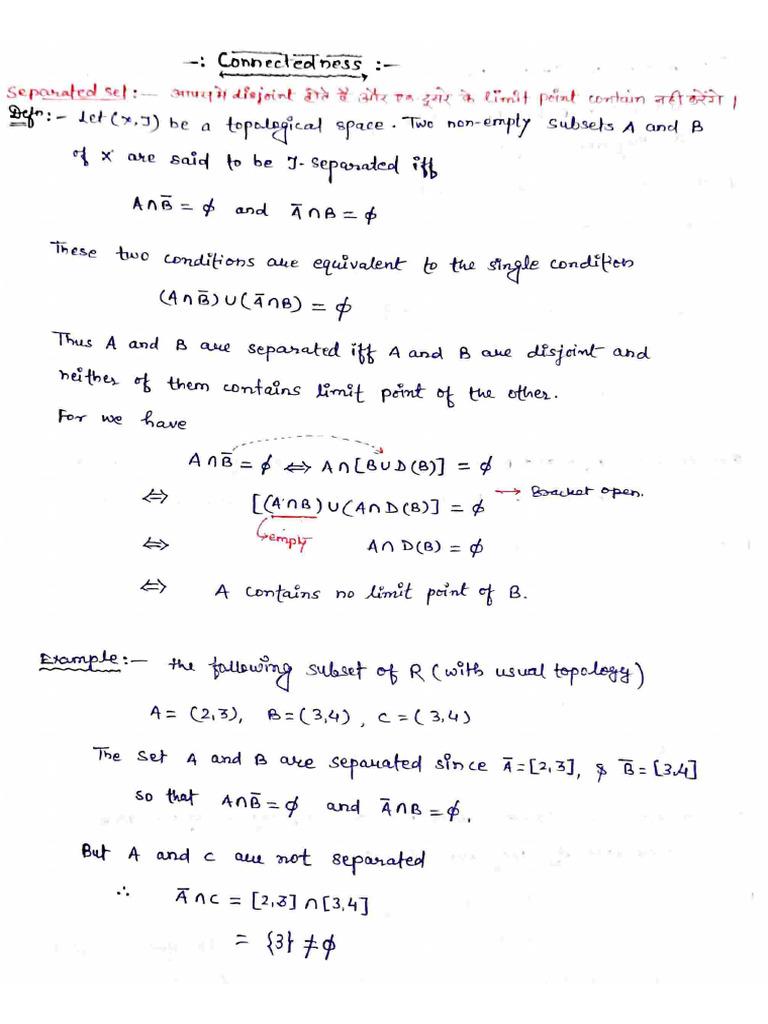 -: Connectedness :-
Separated set :- आपस में disjoint होते है और एक दूसरे के limit point contain नहीं करेंगे ।
Defn :- Let (X, J) be a topological space. Two non-empty subsets A and B
of X are said to be J-separated iff
A∩B̅ = ϕ and A̅∩B = ϕ
These two conditions are equivalent to the single condition
(A∩B̅)∪(A̅∩B) = ϕ
Thus A and B are separated iff A and B are disjoint and
neither of them contains limit point of the other.
For we have
A∩B̅ = ϕ ⇔ A∩[B∪D(B)] = ϕ
⇔ [(A∩B)∪(A∩D(B)] = ϕ → Bracket open.
empty
⇔ A∩D(B) = ϕ
⇔ A contains no limit point of B.
Example :- the following subset of R (with usual topology)
A = (2,3), B = (3,4), C = (3,4)
The set A and B are separated since A̅ = [2,3], & B̅ = [3,4]
so that A∩B̅ = ϕ and A̅∩B = ϕ.
But A and C are not separated
∴ A̅∩C = [2,3] ∩ [3,4]
= {3} ≠ ϕ